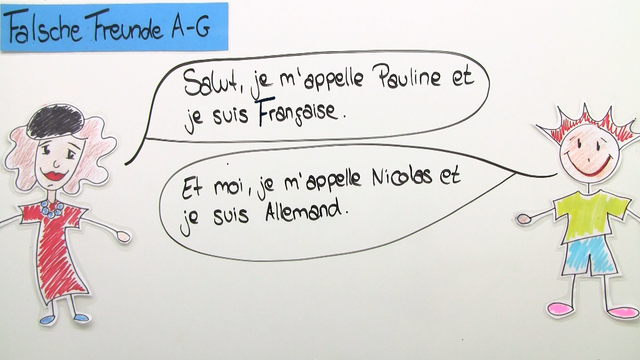 Falsche Freunde A-G
Salut, je m'appelle Pauline et
je suis Française.
Et moi, je m'appelle Nicolas et
je suis Allemand.